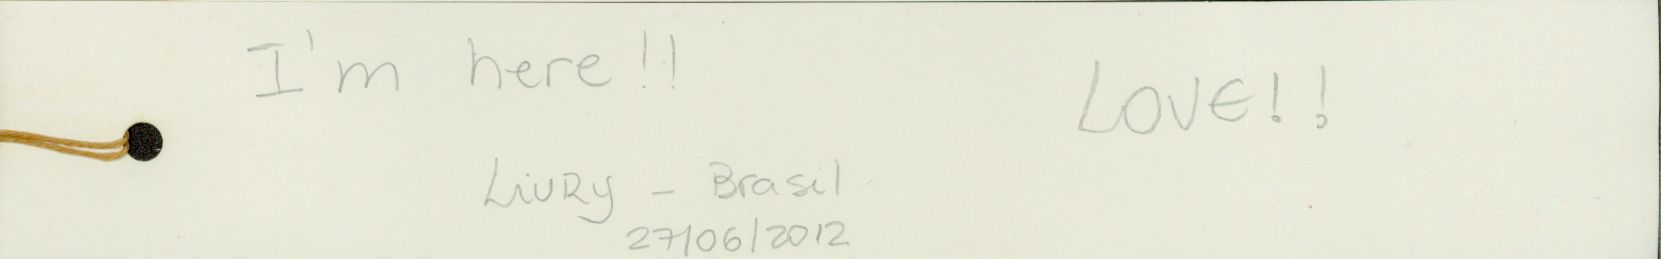 I'm here!!
LOVE!!
Liury - Brasil
27/06/2012